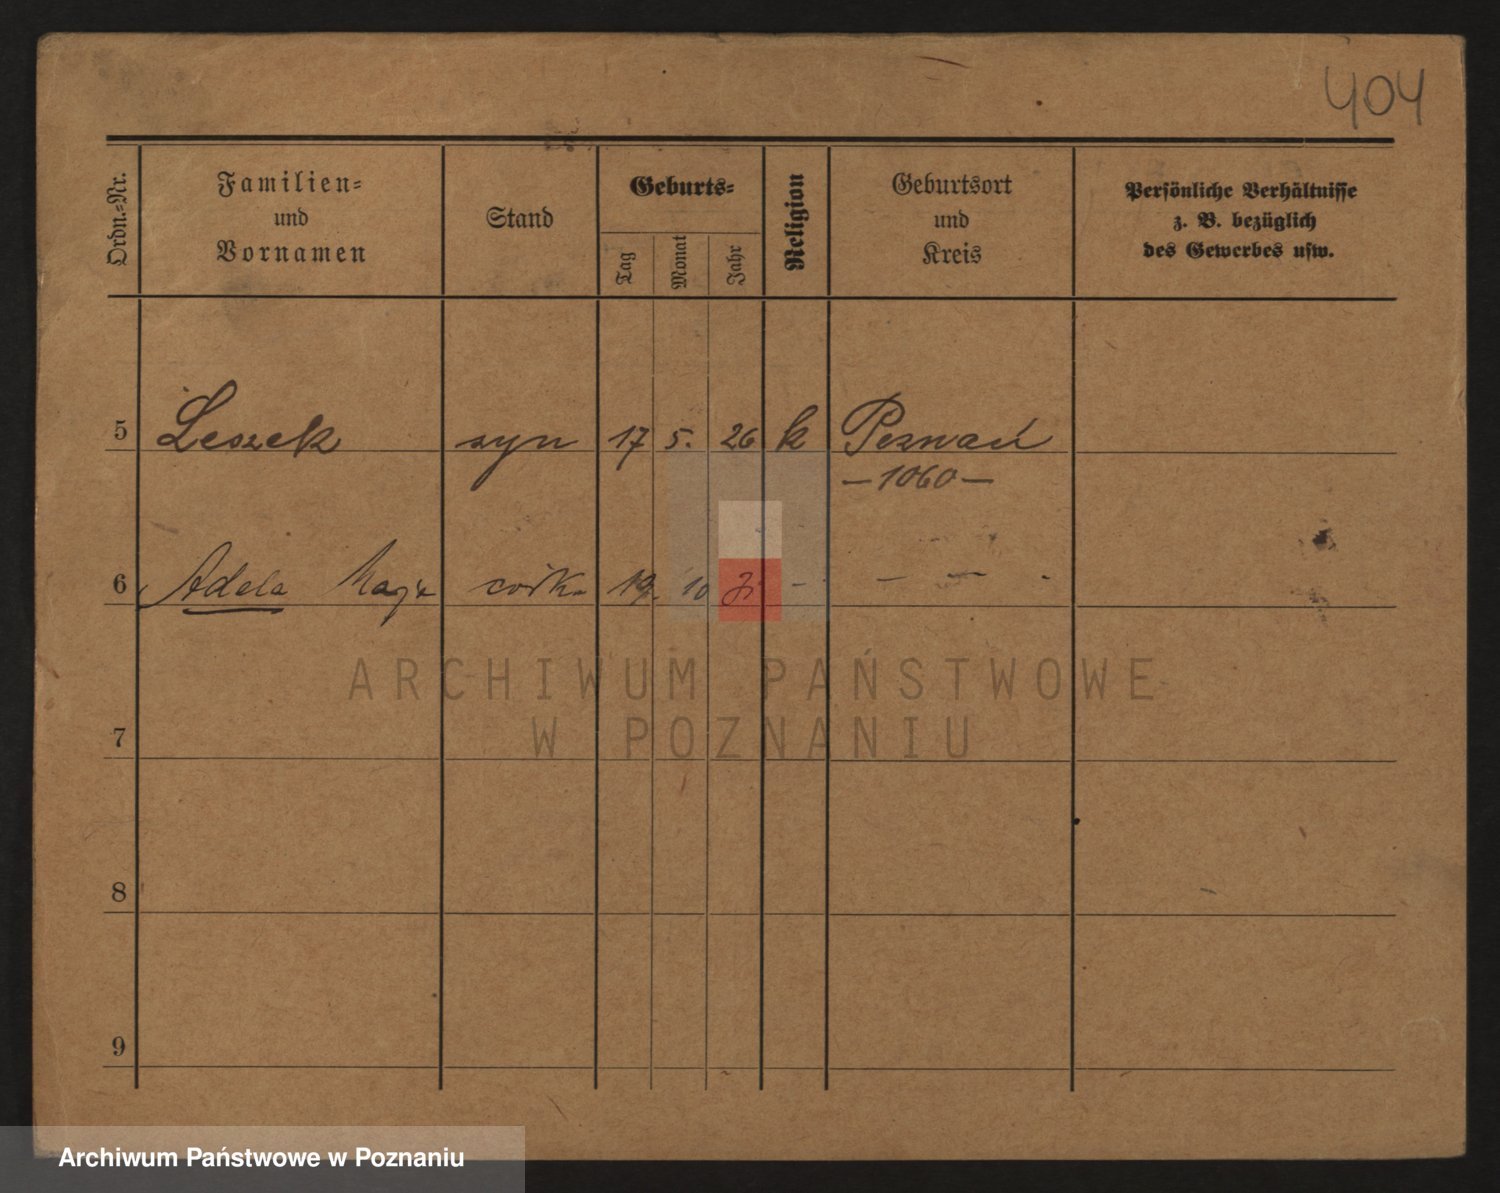 404
Ordn.-Nr.
Familien-
und
Vornamen
Stand
Geburts-
Tag
Monat
Jahr
Religion
Geburtsort
und
Kreis
Persönliche Verhältnisse
z. B. bezüglich
des Gewerbes usw.
5 Leszek syn 17 5. 26 k Poznań
—1060—
6 Adela 19. 10 - — — -
ARCHIWUM PAŃSTWOWE
W POZNANIU
7
8
9
Archiwum Państwowe w Poznaniu